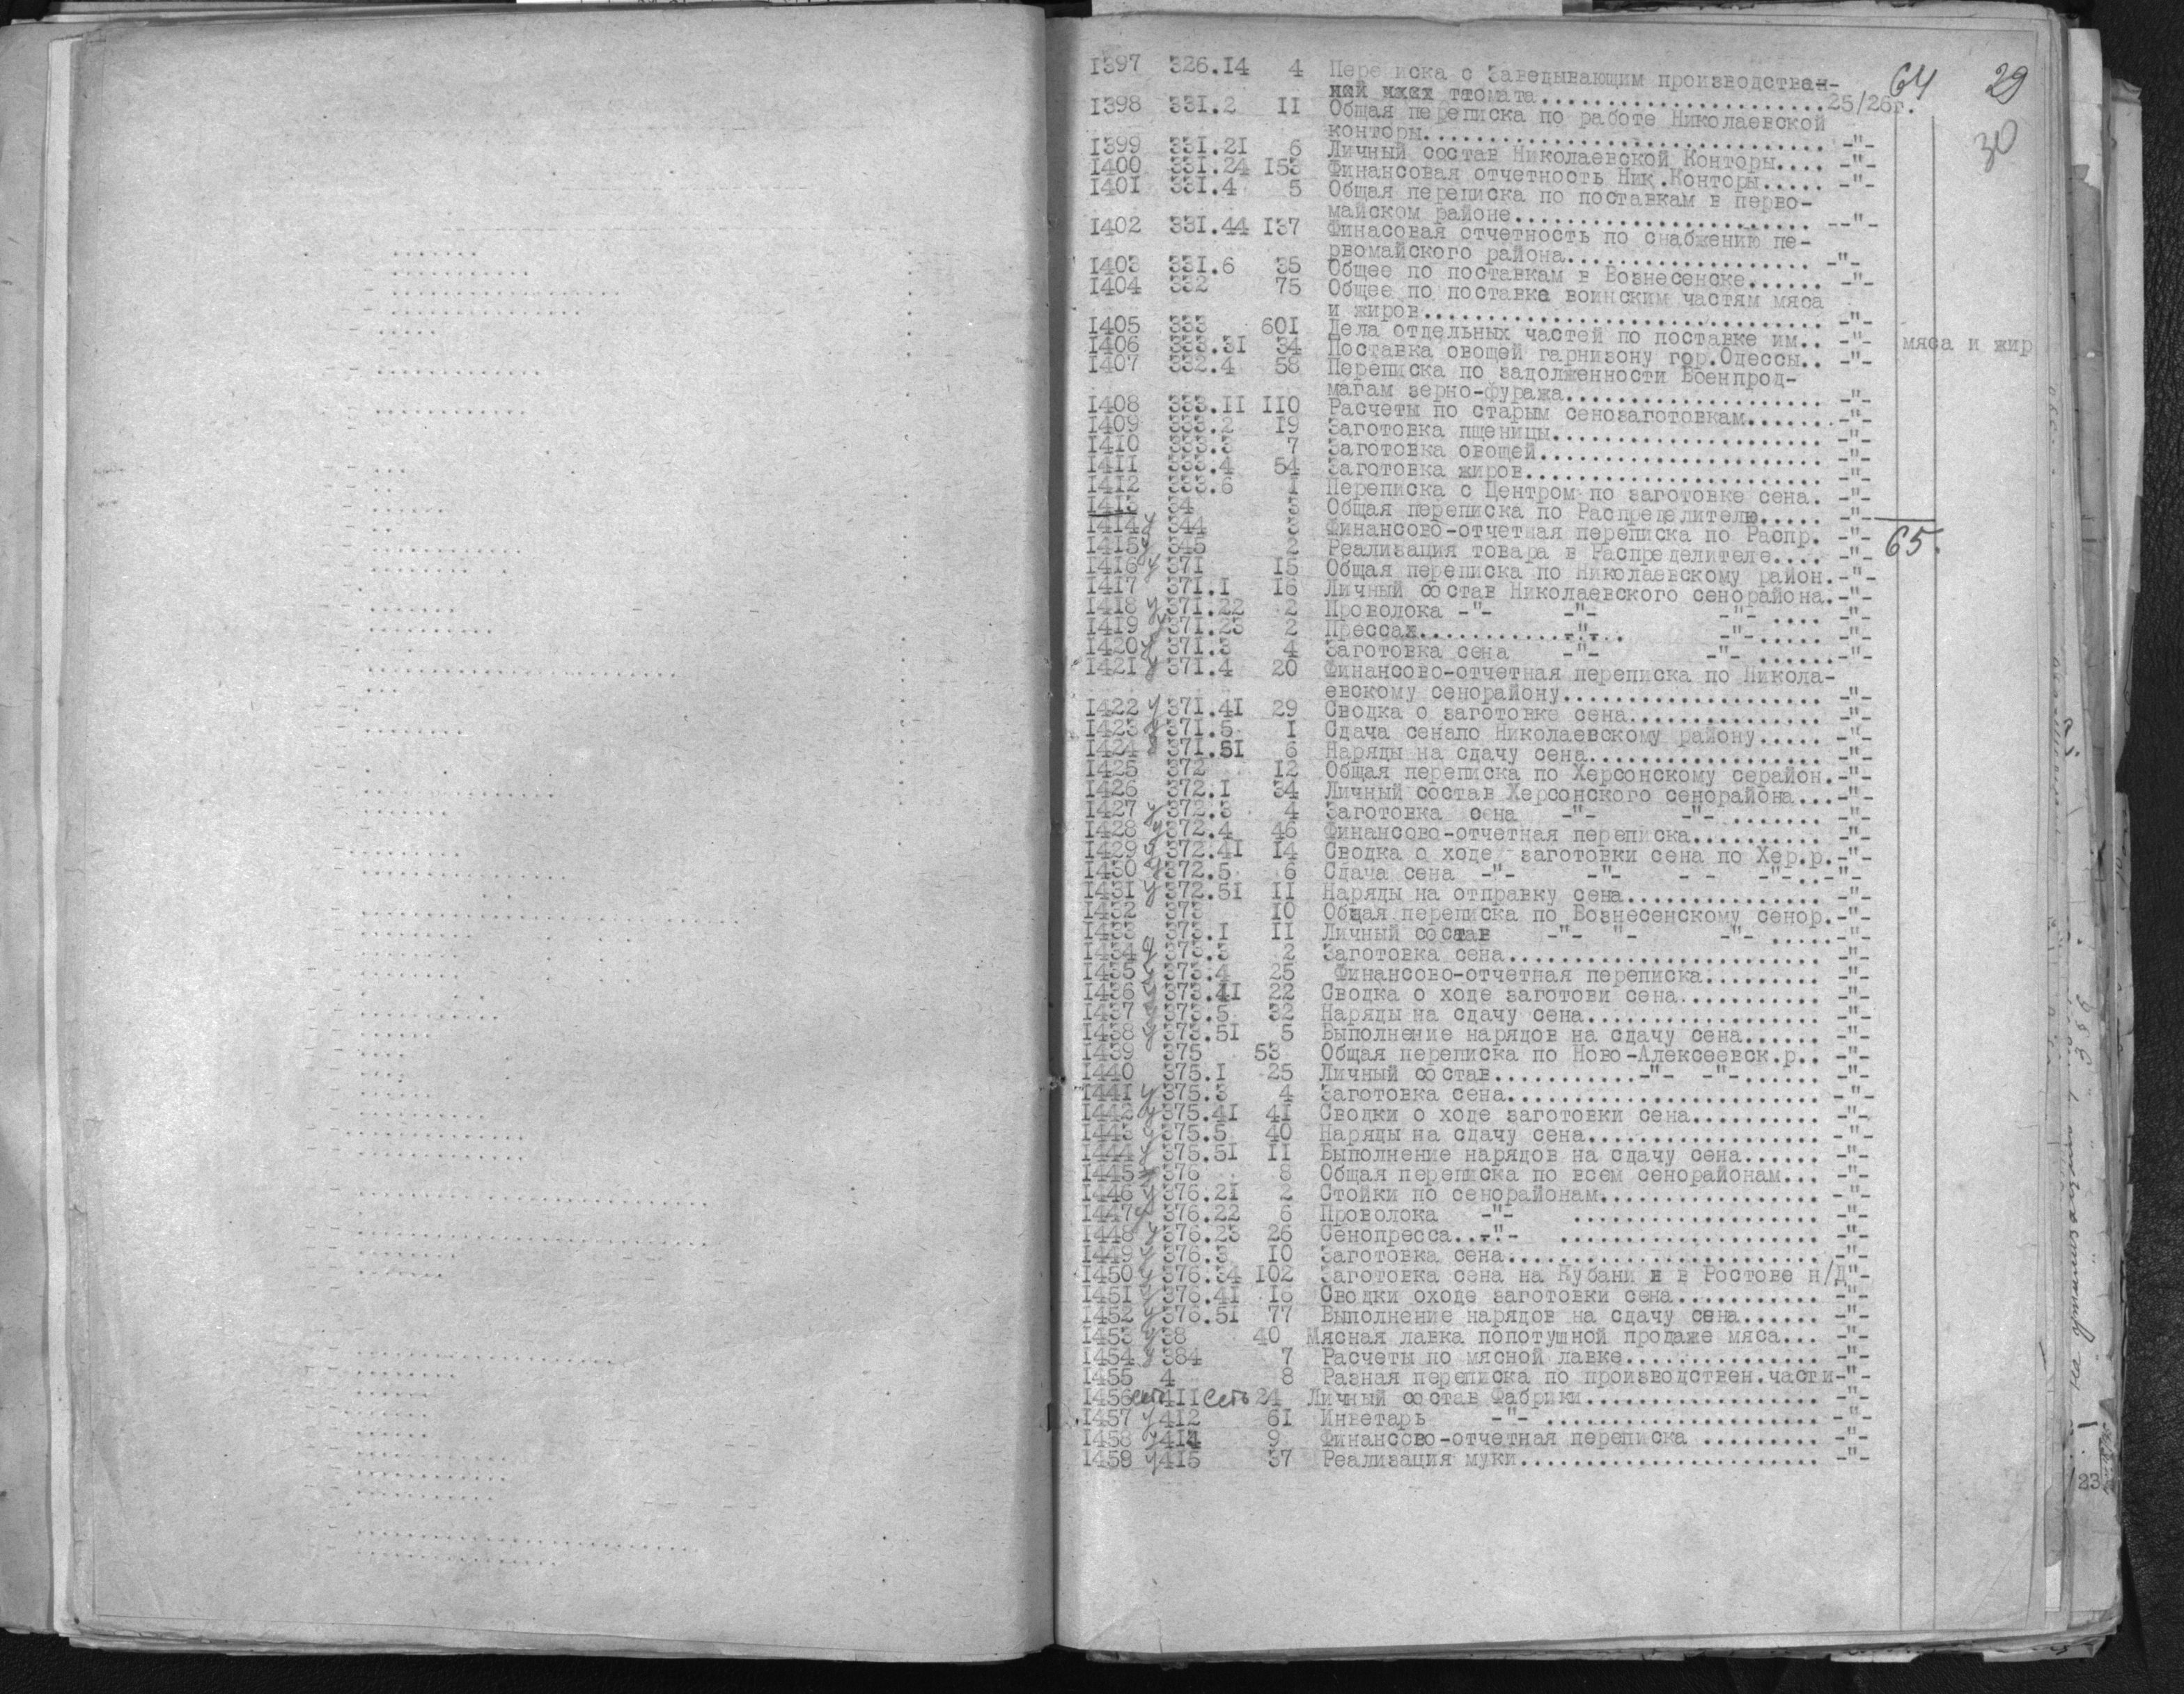 64 29
30
1397 326.14 4 Переписка с Заведывающим производствен-
ной ттомата......................25/26г.
1398 331.2 11 Общая переписка по работе Николаевской
конторы............................... -"-
1399 331.21 6 Личный состав Николаевской Конторы.... -"-
1400 331.24 153 Финансовая отчетность Ник.Конторы..... -"-
1401 331.4 5 Общая переписка по поставкам в перво-
майском районе....................... --"-
1402 331.44 137 Финасовая отчетность по снабжению пе-
рвомайского района................... -"-
1403 331.6 35 Общее по поставкам в Вознесенске...... -"-
1404 332 75 Общее по поставке воинским частям мяса
и жиров............................... -"-
1405 333 601 Дела отдельных частей по поставке им.. -"- мяса и жир
1406 333.31 34 Поставка овощей гарнизону гор.Одессы.. -"-
1407 332.4 58 Переписка по задолженности Военпрод-
магам зерно-фуража.................... -"-
1408 333.11 110 Расчеты по старым сенозаготовкам...... -"-
1409 333.2 19 Заготовка пщеницы..................... -"-
1410 333.3 7 Заготовка овощей...................... -"-
1411 333.4 54 Заготовка жиров....................... -"-
1412 333.6 1 Переписка с Центром по заготовке сена. -"-
1413 34 3 Общая переписка по Распределителю..... -"-
1414 у 344 3 Финансово-отчетная переписка по Распр. -"-
65.
1415 у 345 2 Реализация товара в Распределителе.... -"-
1416 у 371 15 Общая переписка по Николаевскому район.-"-
1417 371.1 16 Личный состав Николаевского сенорайона.-"-
1418 у 371.22 2 Проволока -"- -"- -"- .... -"-
1419 у 371.23 2 Прессаж............-"-.. -"- ..... -"-
1420 у 371.3 4 Заготовка сена -"- -"- ......-"-
1421 у 371.4 20 Финансово-отчетная переписка по Никола-
евскому сенорайону.................... -"-
1422 у 371.41 29 Сводка о заготовке сена............... -"-
1423 у 371.5 1 Сдача сенапо Николаевскому району..... -"-
1424 у 371.51 6 Наряды на сдачу сена.................. -"-
1425 372 12 Общая переписка по Херсонскому серайон.-"-
1426 372.1 34 Личный состав Херсонского сенорайона...-"-
1427 у 372.3 4 Заготовка сена -"- -"- ....... -"-
1428 у 372.4 46 Финансово-отчетная переписка.......... -"-
1429 у 372.41 14 Сводка о ходе заготовки сена по Хер.р.-"-
1430 у 372.5 6 Сдача сена -"- -"- - - -"-..-"-
1431 у 372.51 11 Наряды на отправку сена............... -"-
1432 373 10 Общая переписка по Вознесенскому сенор.-"-
1433 373.1 11 Личный состав -"- "- -"- .....-"-
1434 у 373.3 2 Заготовка сена........................ -"-
1435 у 373.4 25 Финансово-отчетная переписка......... -"-
1436 у 373.41 22 Сводка о ходе заготови сена........... -"-
1437 у 373.5 32 Наряды на сдачу сена.................. -"-
1438 у 373.51 5 Выполнение нарядов на сдачу сена...... -"-
1439 375 53 Общая переписка по Ново-Алексеевск.р.. -"-
1440 375.1 25 Личный состав...........-"- -"-...... -"-
1441 у 375.3 4 Заготовка сена........................ -"-
1442 у 375.41 41 Сводки о ходе заготовки сена.......... -"-
1443 у 375.5 40 Наряды на сдачу сена.................. -"-
1444 у 375.51 11 Выполнение нарядов на сдачу сена...... -"-
1445 у 376 8 Общая переписка по всем сенорайонам... -"-
1446 у 376.21 2 Стойки по сенорайонам................. -"-
1447 у 376.22 6 Проволока -"- ................... -"-
1448 у 376.23 26 Сенопресса..-"- .................... -"-
1449 у 376.3 10 Заготовка сена........................ -"-
1450 у 376.34 102 Заготовка сена на Кубани и в Ростове н/Д"-
1451 у 376.41 16 Сводки оходе заготовки сена........... -"-
1452 у 376.51 77 Выполнение нарядов на сдачу сена...... -"-
1453 у 38 40 Мясная лавка попотушной продаже мяса... -"-
1454 у 384 7 Расчеты по мясной лавке............... -"-
1455 4 8 Разная переписка по производствен.части-"-
1456 есть 411 есть 24 Личный состав Фабрики.................. -"-
1457 у 412 61 Инветарь -"- ..................... -"-
1458 у 414 9 Финансово-отчетная переписка ......... -"-
1458 у 415 37 Реализация муки....................... -"-
23